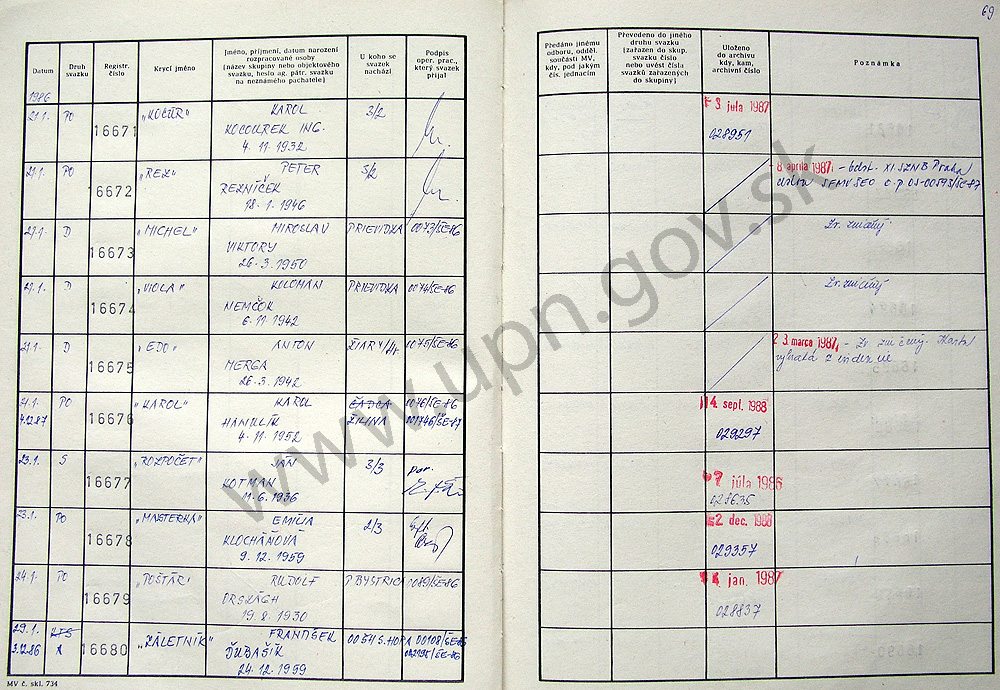 69
Datum
Druh svazku
Registr. číslo
Krycí jméno
Jméno, příjmení, datum narození
rozpracované osoby
(název skupiny nebo objektového
svazku, heslo ag. pátr. svazku
na neznámého pachatele)
U koho se
svazek
nachází
Podpis
oper. prac.,
který svazek
přijal
Předáno jinému
odboru, odděl.
součásti MV,
kdy, pod jakým
čís. jednacím
Převedeno do jiného
druhu svazku
(zařazen do skup.
svazku číslo
nebo uvést čísla
svazků zařazených
do skupiny)
Uloženo
do archivu
kdy, kam,
archivní číslo
Poznámka
1986
21.1. PO 16671 „KOCÚR" KAROL 3/2 3. júla 1987
KOCOUREK ING. 028951
4. 11. 1932
21.1. PO 16672 „REZ" PETER 5/2 8. apríla 1987, - odst. XI. SZNB Praha
REZNÍČEK
18. 1. 1946
21.1. D 16673 „MICHEL" MIROSLAV PRIEVIDZA 0073/ŠE-86 Zv. zničený
VIKTORY
26. 3. 1950
21.1. D 16674 „VIOLA" KOLOMAN PRIEVIDZA 0074/ŠE-86 Zv. zničený
NEMČOK
6. 11. 1942
21.1. D 16675 „EDO" ANTON ŽIAR n/H. 0075/ŠE-86 3. marca 1987, - Zv. zničený.
MERGA
26. 3. 1942
21.1. PO 16676 „KAROL" KAROL ČADCA 0076/ŠE-86 14. sept. 1988
4.12.87 HANULÍK ŽILINA 001746/ŠE-87 029297
4. 11. 1952
23.1. S 16677 „ROZPOČET" JÁN 3/3 por. 7 júla 1986
KOTMAN 028635
11. 6. 1936
23.1. PO 16678 „MASTERKA" EMÍLIA 2/3 2. dec. 1988
KLOCHÁŇOVÁ 029357
9. 12. 1959
24.1. PO 16679 „POŠTÁR" RUDOLF P. BYSTRICA 0089/ŠE-86 14. jan. 1987
ORSZÁGH 028837
19. 2. 1930
29.1. 16680 „ZÁLETNÍK" FRANTIŠEK 0054/S.HORA 00108/ŠE-86
3.12.86 ĎUBAŠÍK
24. 12. 1959
MV č. skl. 734
www.upn.gov.sk